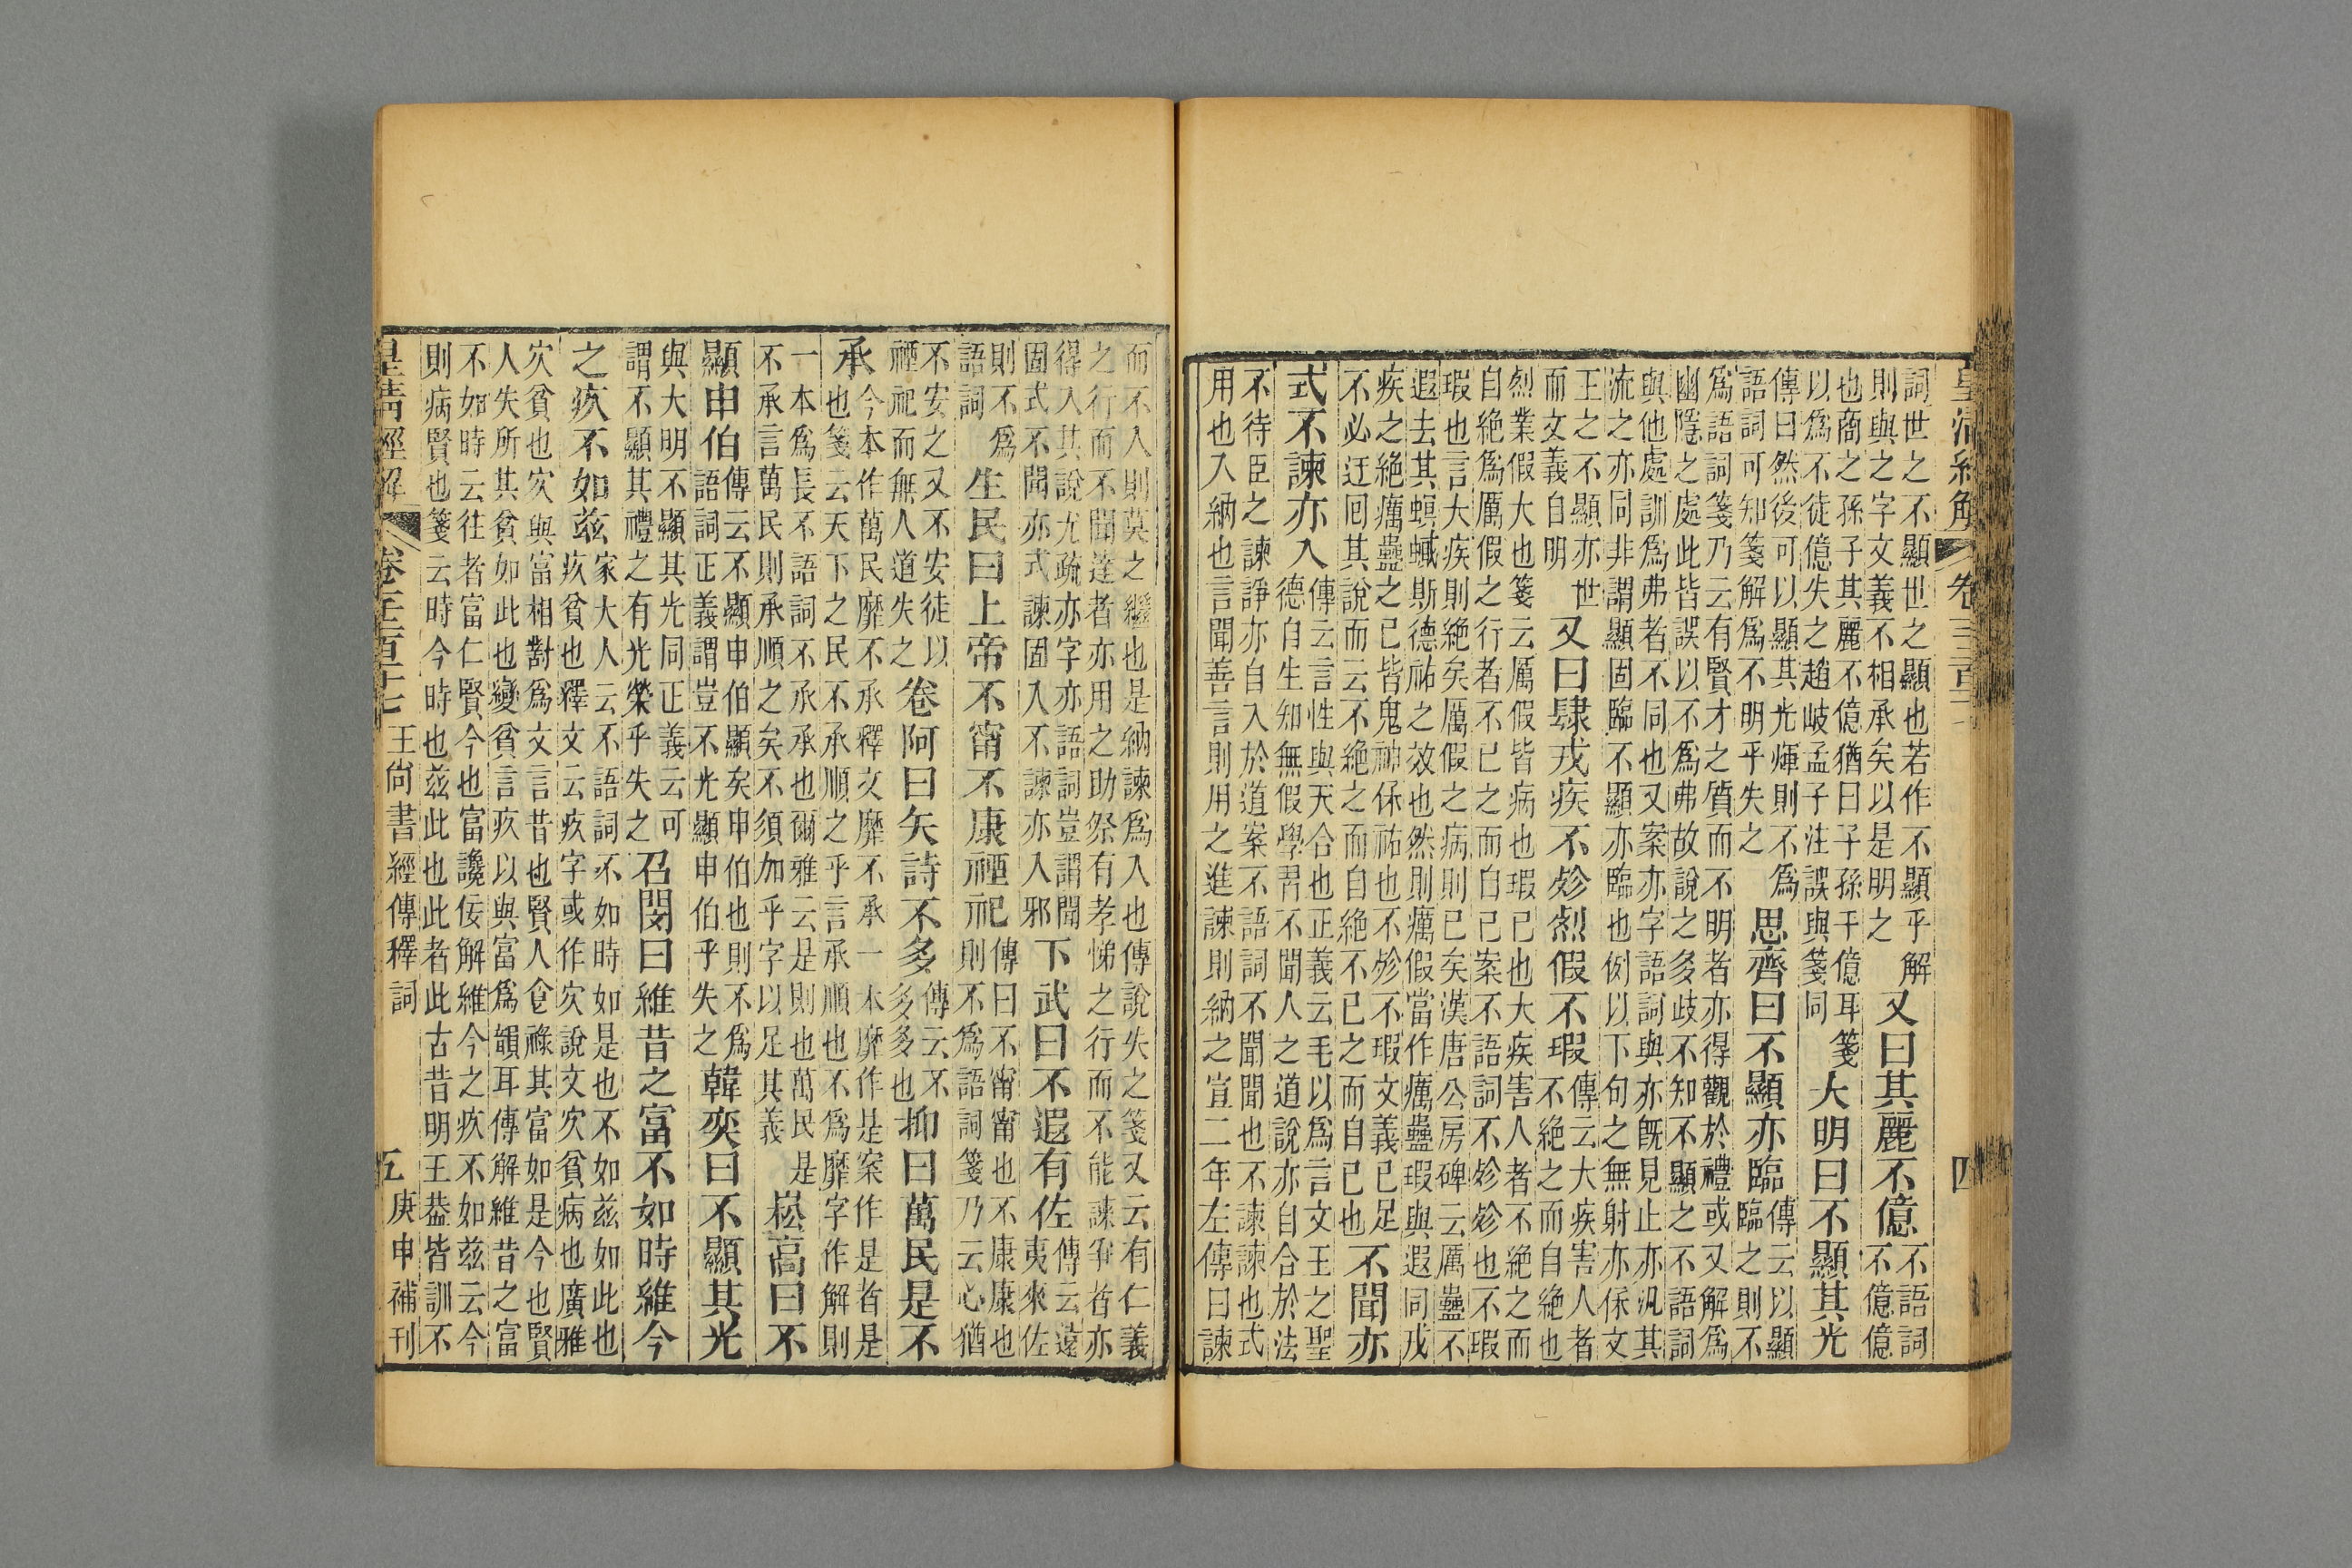 皇清經解
四
詞世之不顯世之顯也若作不顯乎解
則與之字文義不相承矣以是明之
又曰其麗不億
不語詞
不億億
也商之孫子其麗不億猶曰子孫千億耳箋
以爲不徒億失之趙岐孟子注誤與箋同
大明曰不顯其光
傳曰然後可以顯其光煇則不爲
語詞可知箋解爲不明乎失之
思齊曰不顯亦臨
傳云以顯
臨之則不
爲語詞箋乃云有賢才之質而不明者亦得觀於禮或又解爲
幽隱之處此皆誤以不爲弗故說之多歧不知不顯之不語詞
與他處訓爲弗者不同也又案亦字語詞與亦旣見止亦汎其
流之亦同非謂顯固臨不顯亦臨也例以下句之無射亦保文
王之不顯亦世
而文義自明
又曰肆戎疾不殄烈假不瑕
傳云大疾害人者
不絶之而自絶也
烈業假大也箋云厲假皆病也瑕已也大疾害人者不絶之而
自絶爲厲假之行者不已之而自已案不語詞不殄殄也不瑕
瑕也言大疾則絶矣厲假之病則已矣漢唐公房碑云厲蠱不
遐去其螟蟘斯德祐之效也然則癘假當作癘蠱瑕與遐同戎
疾之絶癘蠱之已皆鬼神保祐也不殄不瑕文義已足
不必迂囘其說而云不絶之而自絶不已之而自已也
不聞亦
式不諫亦入
傳云言性與天合也正義云毛以爲言文王之聖
德自生知無假學習不聞人之道說亦自合於法
不待臣之諫諍亦自入於道案不語詞不聞聞也不諫諫也式
用也入納也言聞善言則用之進諫則納之宣二年左傳曰諫
而不入則莫之繼也是納諫爲入也傳說失之箋又云有仁義
之行而不聞達者亦用之助祭有孝悌之行而不能諫爭者亦
得入其說尤疏亦字亦語詞豈謂聞
固式不聞亦式諫固入不諫亦入邪
下武曰不遐有佐
傳云遠
夷來佐
則不爲
語詞
生民曰上帝不甯不康禋祀
傳曰不甯甯也不康康也
則不爲語詞箋乃云心猶
不安之又不安徒以
禋祀而無人道失之
卷阿曰矢詩不多
傳云不
多多也
抑曰萬民是不
承
今本作萬民靡不承釋文靡不承一本靡作是案作是者是
也箋云天下之民不承順之乎言承順也不爲靡字作解則
一本爲長不語詞不承承也爾雅云是則也萬民是
不承言萬民則承順之矣不須加乎字以足其義
崧高曰不
顯申伯
傳云不顯申伯顯矣申伯也則不爲
語詞正義謂豈不光顯申伯乎失之
韓奕曰不顯其光
與大明不顯其光同正義云可
謂不顯其禮之有光榮乎失之
召閔曰維昔之富不如時維今
之疚不如兹
家大人云不語詞不如時如是也不如兹如此也
疚貧也釋文云疚字或作㝌說文㝌貧病也廣雅
㝌貧也㝌與富相對爲文言昔也賢人食祿其富如是今也賢
人失所其貧如此也變貧言疚以與富爲韻耳傳解維昔之富
不如時云往者富仁賢今也富讒佞解維今之疚不如兹云今
則病賢也箋云時今時也兹此也此者此古昔明王葢皆訓不
皇清經解 王尙書經傳釋詞 五 庚申補刊